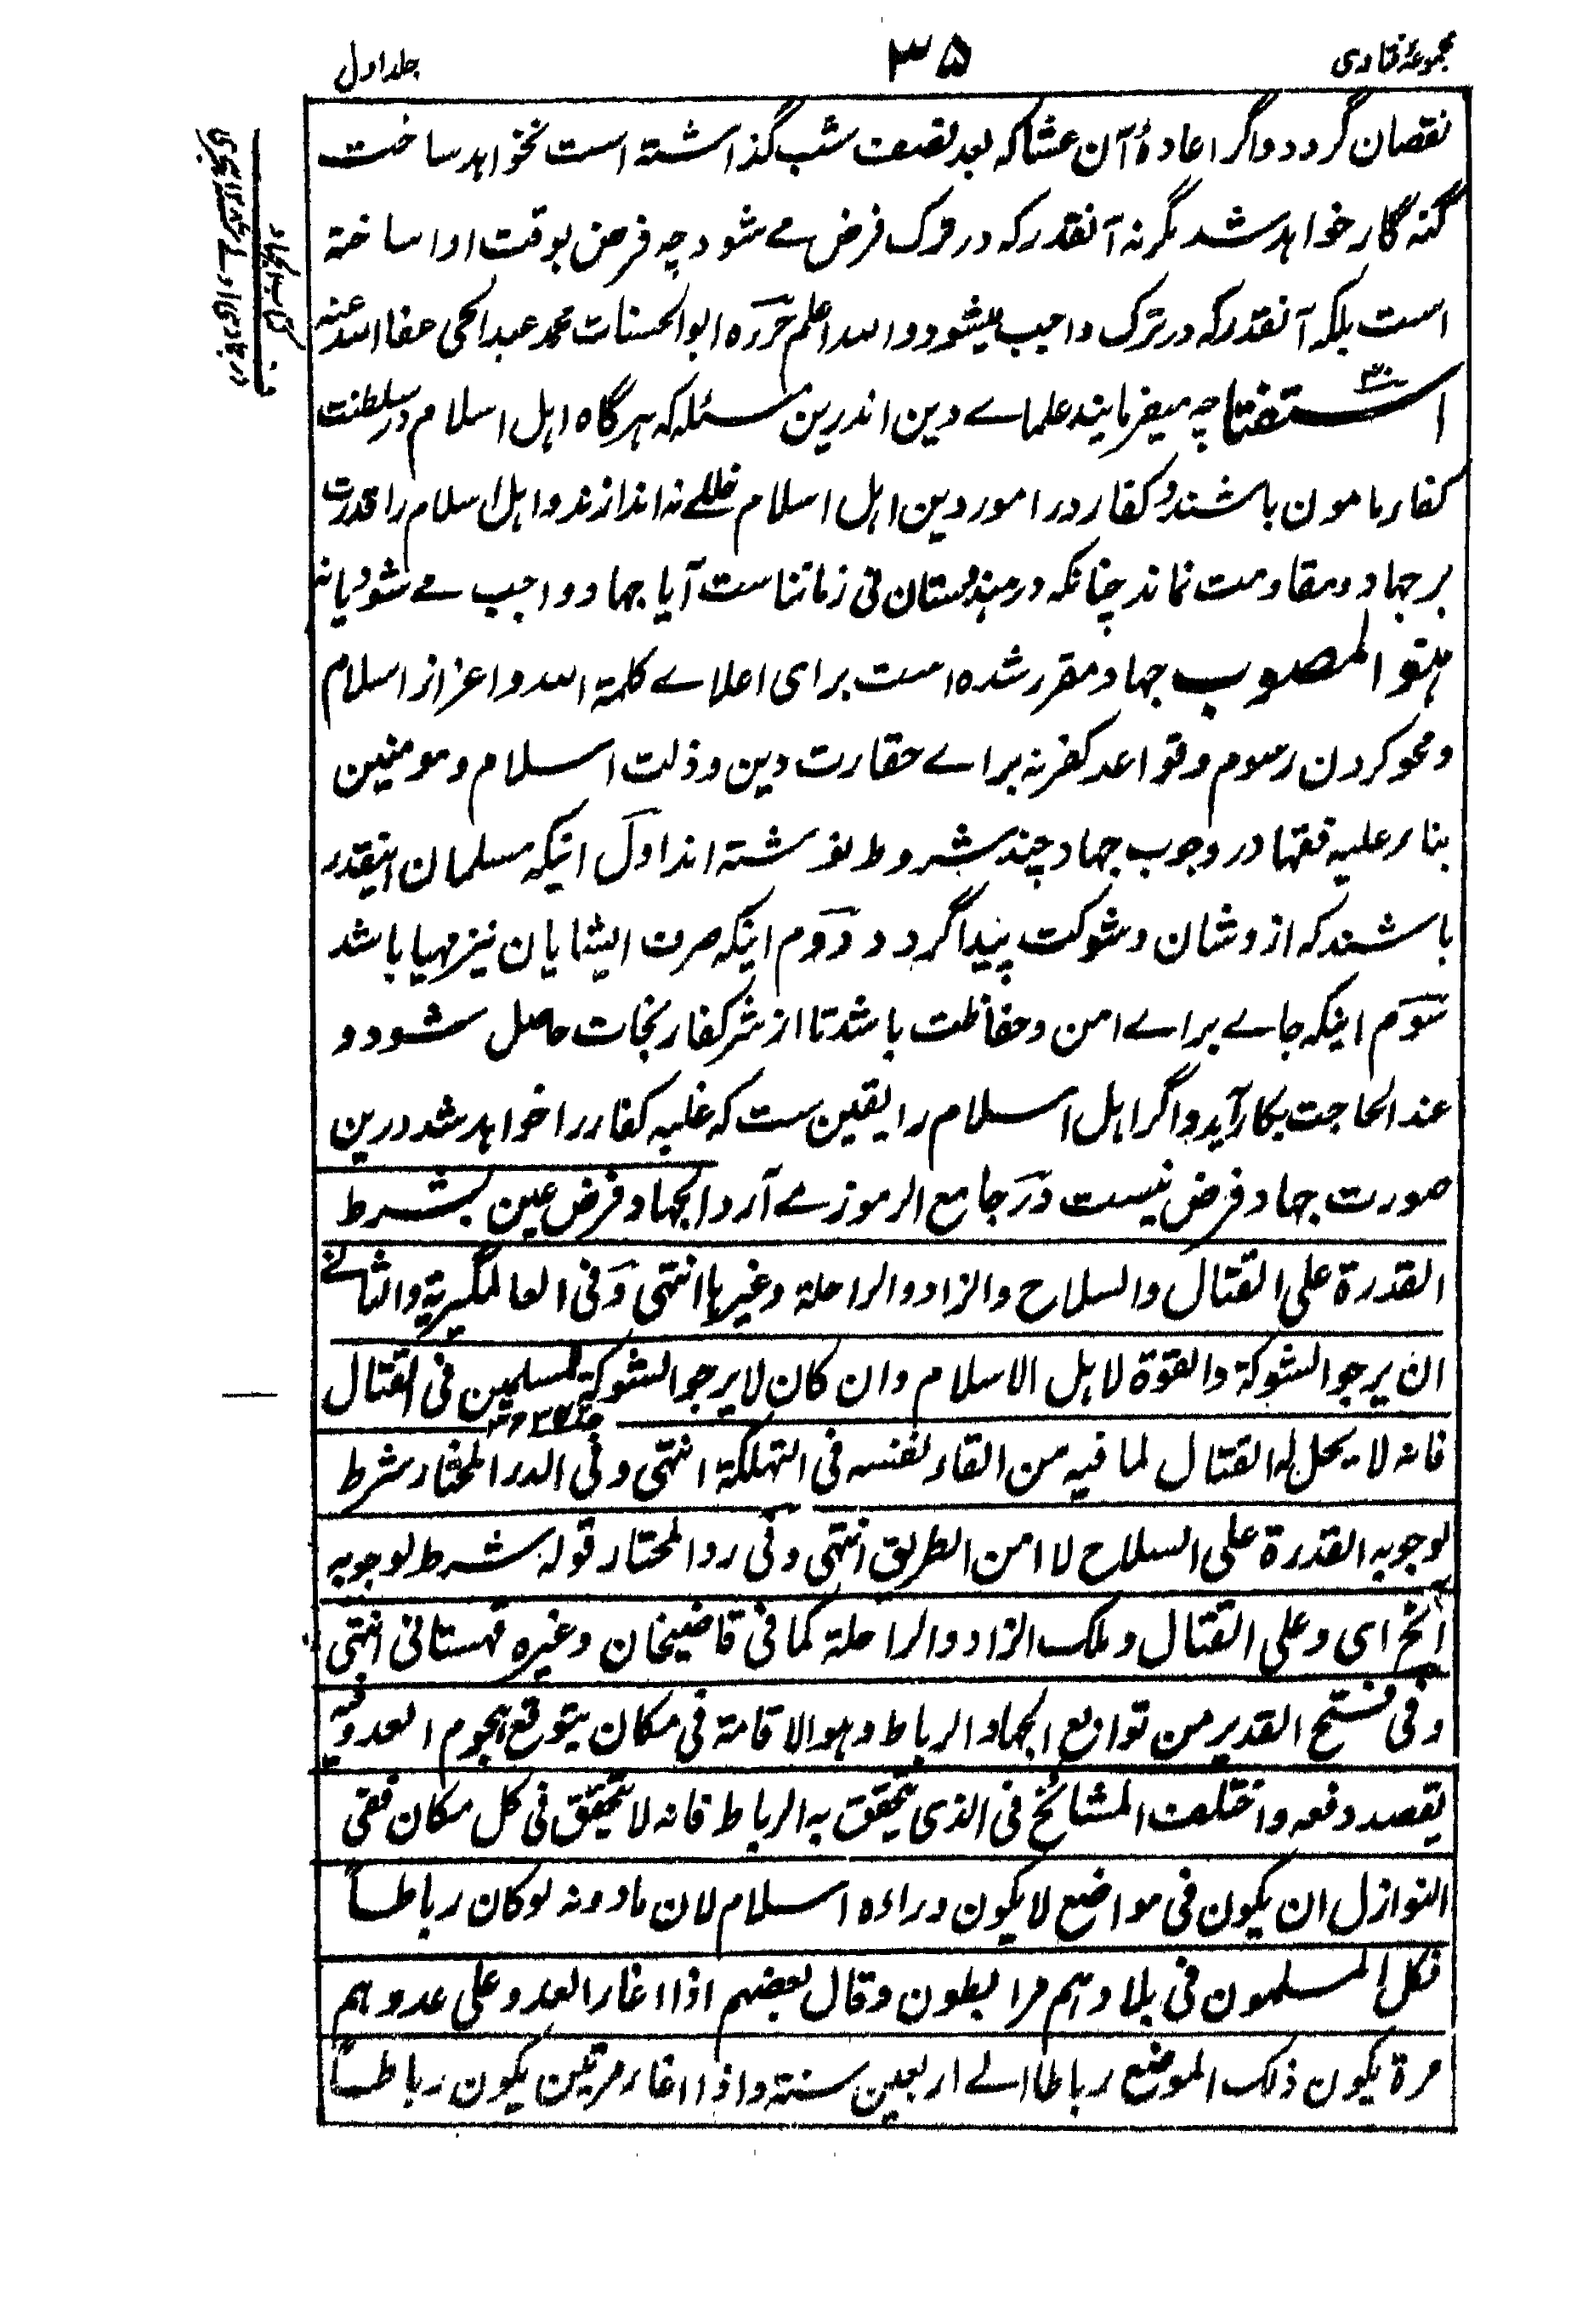 مجموعۂ فتاوی
۳۵
جلد اول
نقصان گردد واگر اعادۂ آن عشا که بعد نصف شب گذاشته است نخواهد ساخت
گنه گار خواهد شد مگر نه آنقدر که در ترک فرض مے شود چه فرض بوقت ادا ساخته
است بلکه آنقدر که در ترک واجب میشود والله اعلم حرره ابو الحسنات محمد عبد الحی عفا الله عنه
استفتا چه میفرمایند علماے دین اندرین مسئله که هر گاه اهل اسلام در سلطنت
کفار مامون باشند و کفار در امور دین اهل اسلام خللے نه اندازند و اهل اسلام را قدرت
بر جهاد و مقاومت نماند چنانکه در هندوستان فی زماننا ست آیا جهاد واجب مے شود یا نه
هو المصوب جهاد مقرر شده است برای اعلاے کلمة الله و اعزاز اسلام
و محو کردن رسوم و قواعد کفر نه براے حقارت دین و ذلت اسلام و مومنین
بناء علیه فقها در وجوب جهاد چند شروط نوشته اند اول اینکه مسلمان اینقدر
باشند که از و شان و شوکت پیدا گردد دوم اینکه صرف ایشا یان نیز مهیا باشد
سوم اینکه جاے براے امن و حفاظت باشد تا از شر کفار نجات حاصل شود و
عند الحاجت بکار آید و اگر اهل اسلام را یقین ست که غلبه کفار را خواهد شد درین
صورت جهاد فرض نیست در جامع الرموز مے آرد الجهاد فرض عین بشرط
القدرة علی القتال والسلاح والزاد والراحلة وغیرها انتهی وفی العالمگیریة والثانے
ان یرجو الشوکة والقوة لاهل الاسلام وان کان لا یرجو الشوکة للمسلمین فی القتال
فانه لا یحل له القتال لما فیه من القاء نفسه فی التهلکة انتهی وفی الدر المختار شرط
لوجوبه القدرة علی السلاح لا امن الطریق انتهی وفی رد المحتار قوله شرط لوجوبه
الخ ای وعلی القتال وملک الزاد والراحلة کما فی قاضیخان وغیره قهستانی انتهی
وفی فتح القدیر من توابع الجهاد الرباط وهو الاقامة فی مکان یتوقع هجوم العدو فیه
یقصد دفعه واختلف المشائخ فی الذی یتحقق به الرباط فانه لا یتحقق فی کل مکان ففی
النوازل ان یکون فی مواضع لا یکون وراءه اسلام لان ما دونه لو کان رباطاً
فکل المسلمون فی بلادهم مرابطون وقال بعضهم اذا اغار العدو علی عدوهم
مرة یکون ذلک الموضع رباطا الے اربعین سنة واذا اغار مرتین یکون رباطاً